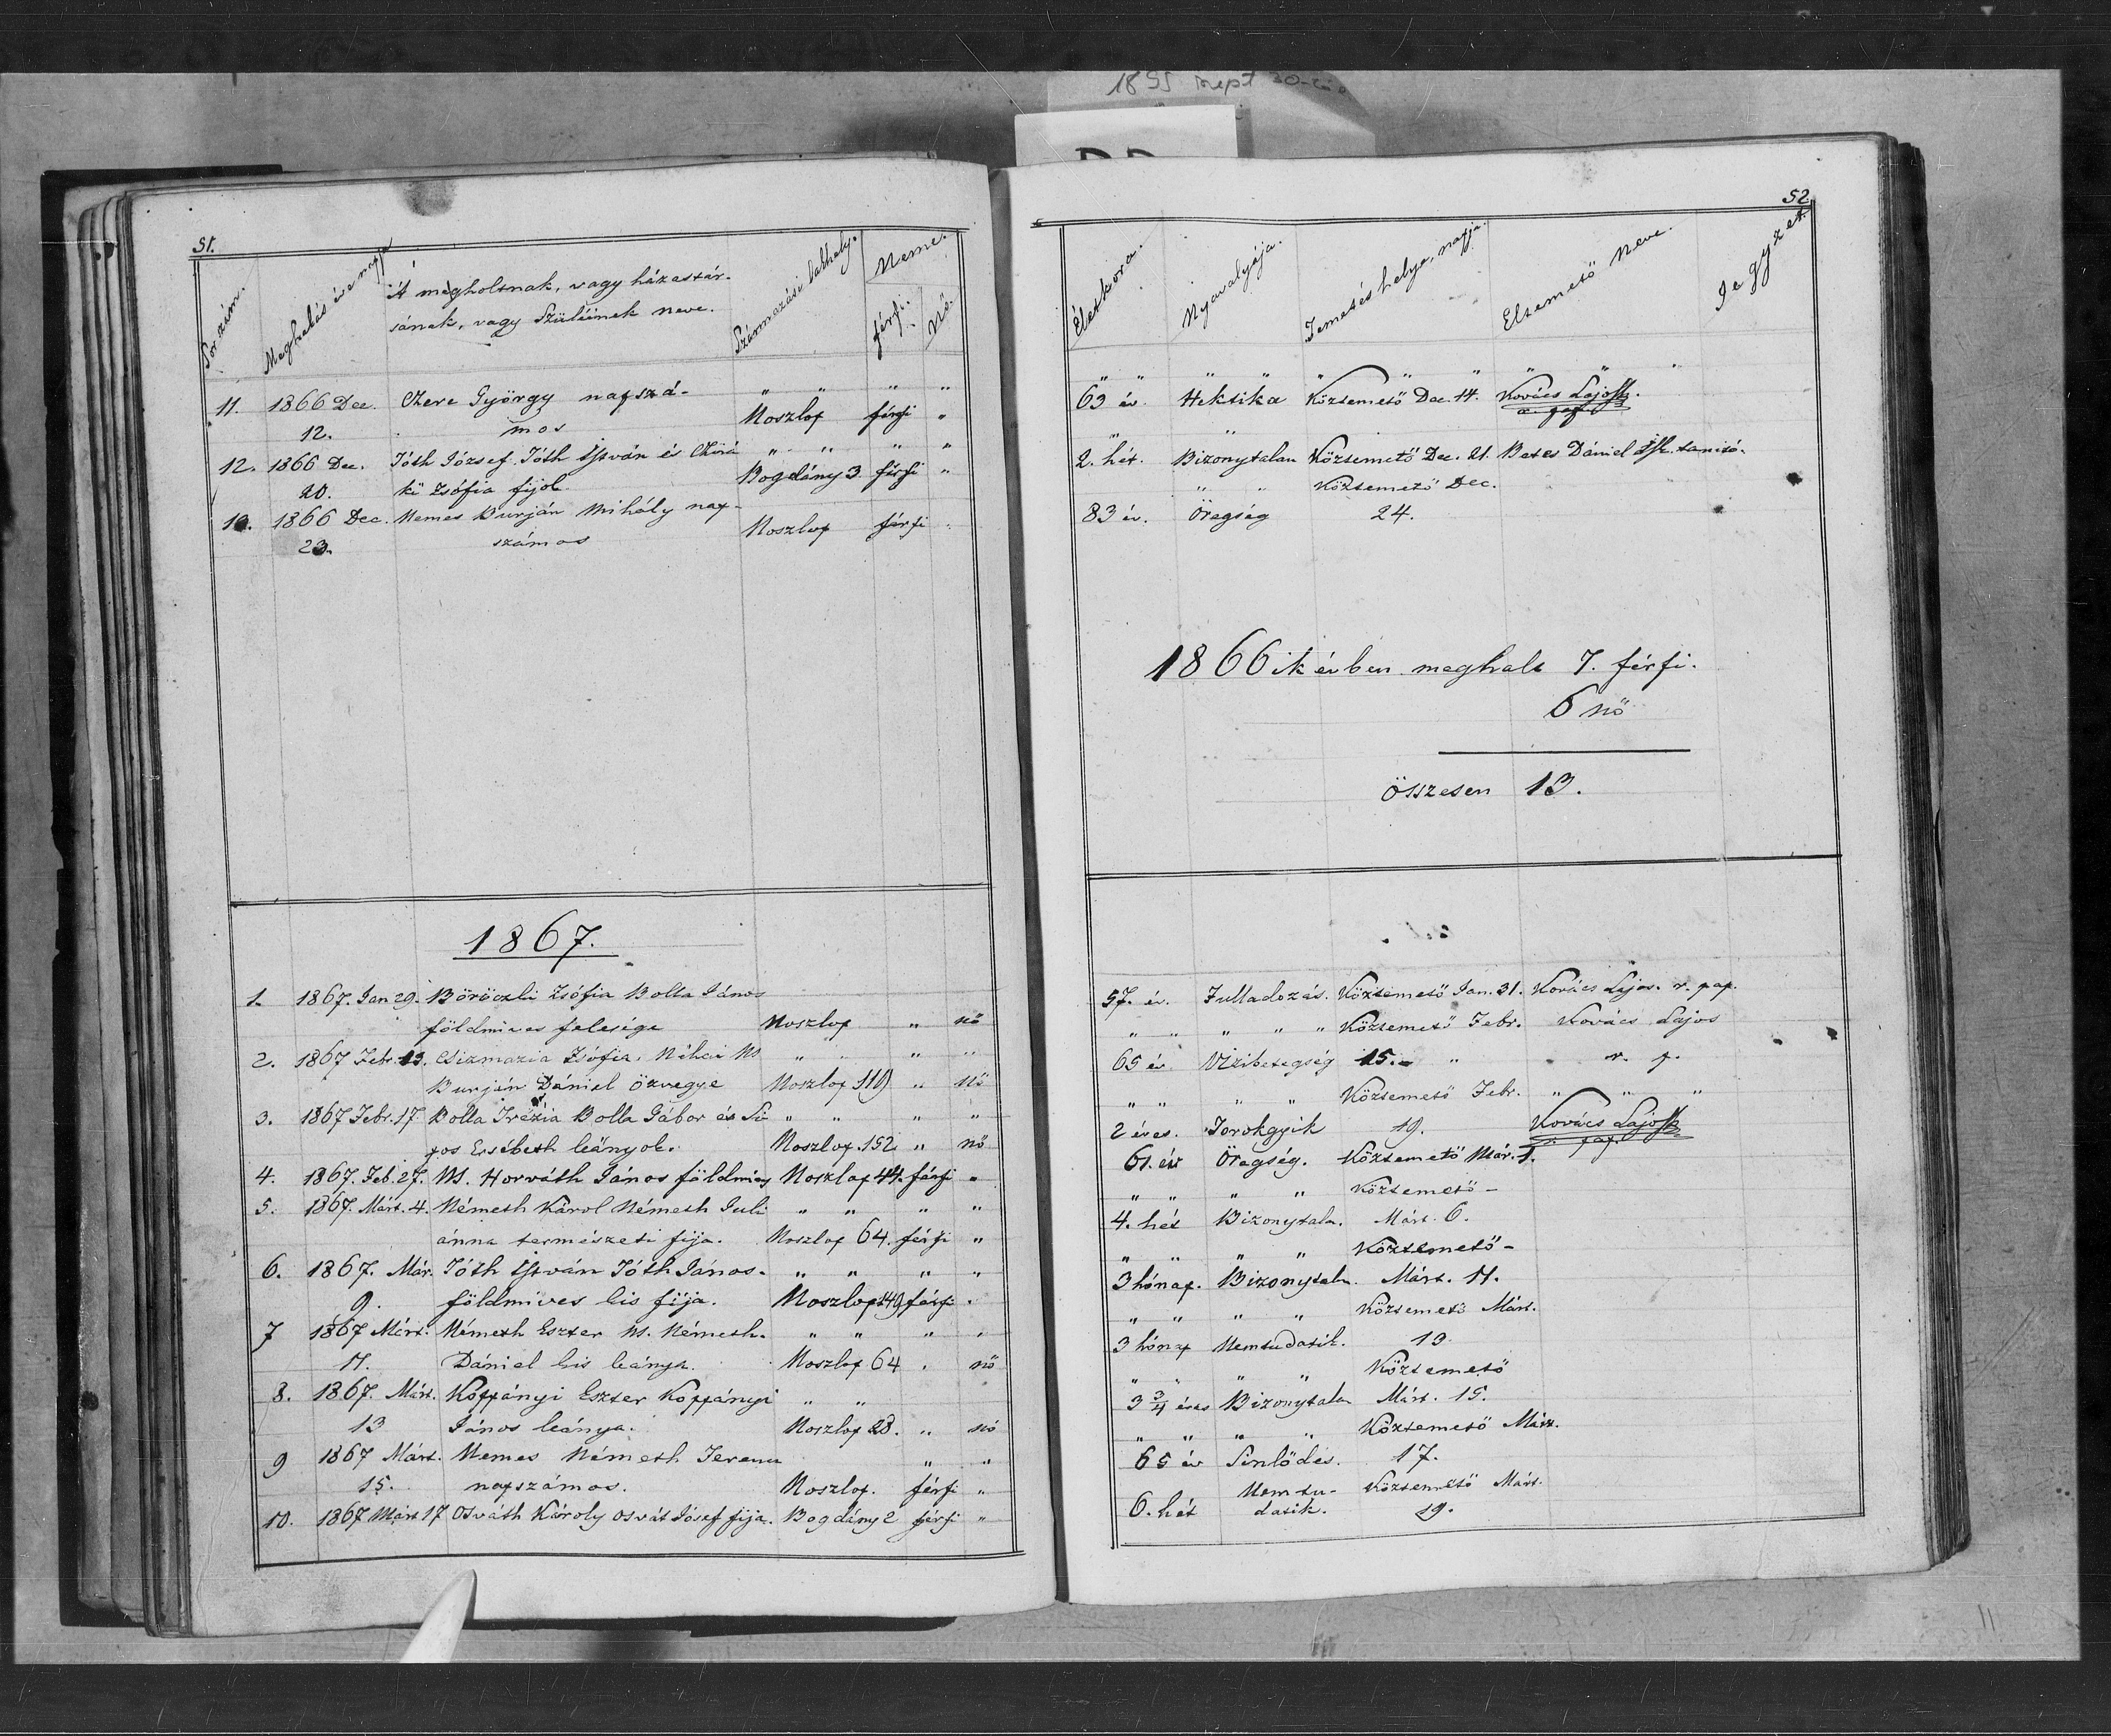 1855 sept 30-
51.
Sor szám.
Meghalás éve napja
A megholtnak, vagy házastár-
sának, vagy Szüleinek neve.
Származási lakhely.
Neme.
férfi.
Nő.
11. 1866 Dec. Czere György napszá- " " " "
12. mos Noszlop férfi "
12. 1866 Dec. Tóth József Tóth István és " " " "
20. ki Zsófia fijok Bogdány 3. férfi "
13. 1866 Dec. Nemes Burján Mihály nap-
23. számos Noszlop férfi
1867.
1. 1867. Jan 29. Böröczki Zsófia Bolla János
földmives felesége Noszlop " nő
2. 1867 Febr. 13. Csizmazia Zsófia. Néhai Ns " " " "
Burján Dániel özvegye Noszlop 110 " nő
3. 1867 Febr. 17. Bolla Trézia Bolla Gábor és Si " " " "
pos Ersébeth leányok. Noszlop. 152 " nő
4. 1867. Feb. 27. Ns. Horváth János földmives Noszlop 44. férfi "
5. 1867. Márt. 4. Németh Károl Németh Juli " " " "
ánna természeti fija. Noszlop 64. férfi "
6. 1867. Már. Tóth István Tóth János. " " " "
9. földmives kis fija. Noszlop 149 férfi "
7 1867 Márt. Németh Eszter Ns. Németh. " " " "
11. Dániel kis leánya. Noszlop 64 . nő
8. 1867. Márt. Koppányi Eszter Koppányi " "
13 János leánya. Noszlop 28. " nő
9 1867 Márt. Nemes Németh Ferencz " "
15. napszámos. Noszlop. férfi "
10. 1867 Márt 17 Osváth Károly Osvát Jósef fija. Bogdány 2 férfi "
52
Életkora.
Nyavalyája.
Temetés helye, napja.
Eltemető Neve.
Jegyzet.
63 év. Hektika Köztemető Dec. 14. Kovács Lajos
r. pap
2. hét. Bizonytalan Köztemető Dec. 21. Betes Dániel tanitó.
" " Köztemető Dec.
83 év. Öregség 24.
1866ik évben meghalt 7. férfi.
6 nő
összesen 13.
57. év. Fulladozás. Köztemető Jan. 31. Kovács Lajos. r. pap.
" " " " " Köztemető Febr. Kovács Lajos
65 év Vizibetegség 15. " r. p.
" " " " Köztemető Febr. " " "
2 éves. Torokgyik 19. Kovács Lajos
r. pap.
61. év Öregség. Köztemető Már. 1.
" " " " Köztemető -
4. hét Bizonytala. Márt. 6.
" " " " Köztemető -
3 hónap. Bizonytala. Márt. 11.
" " " " Köztemető Márt.
3 hónap Nemtudatik. 13
" " " " Köztemető
3 3/4 éves Bizonytala Márt. 15.
" " " " Köztemető Márt.
65 év Sinlődés. 17.
Nemtu- Köztemető Márt.
6. hét datik. 19.
11